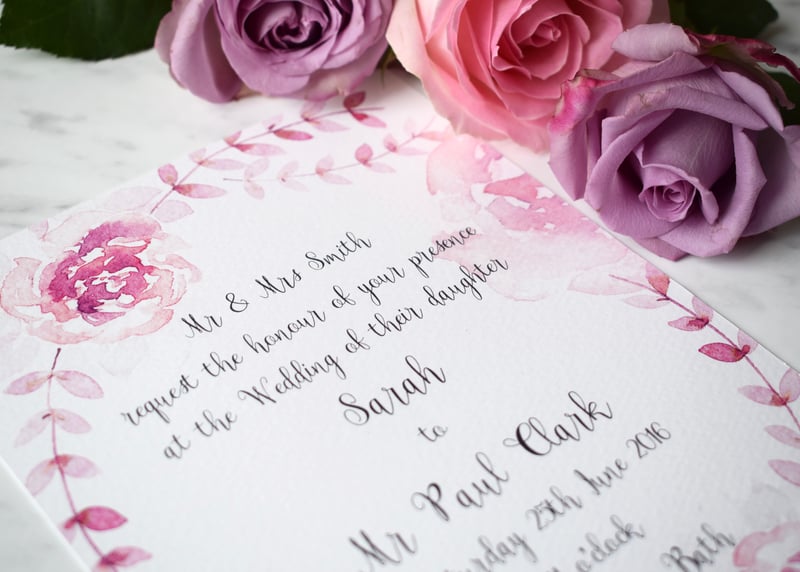 Mr & Mrs Smith
request the honour of your presence
at the Wedding of their daughter
Sarah
to
Mr Paul Clark
25th June 2016
o'clock
Bath